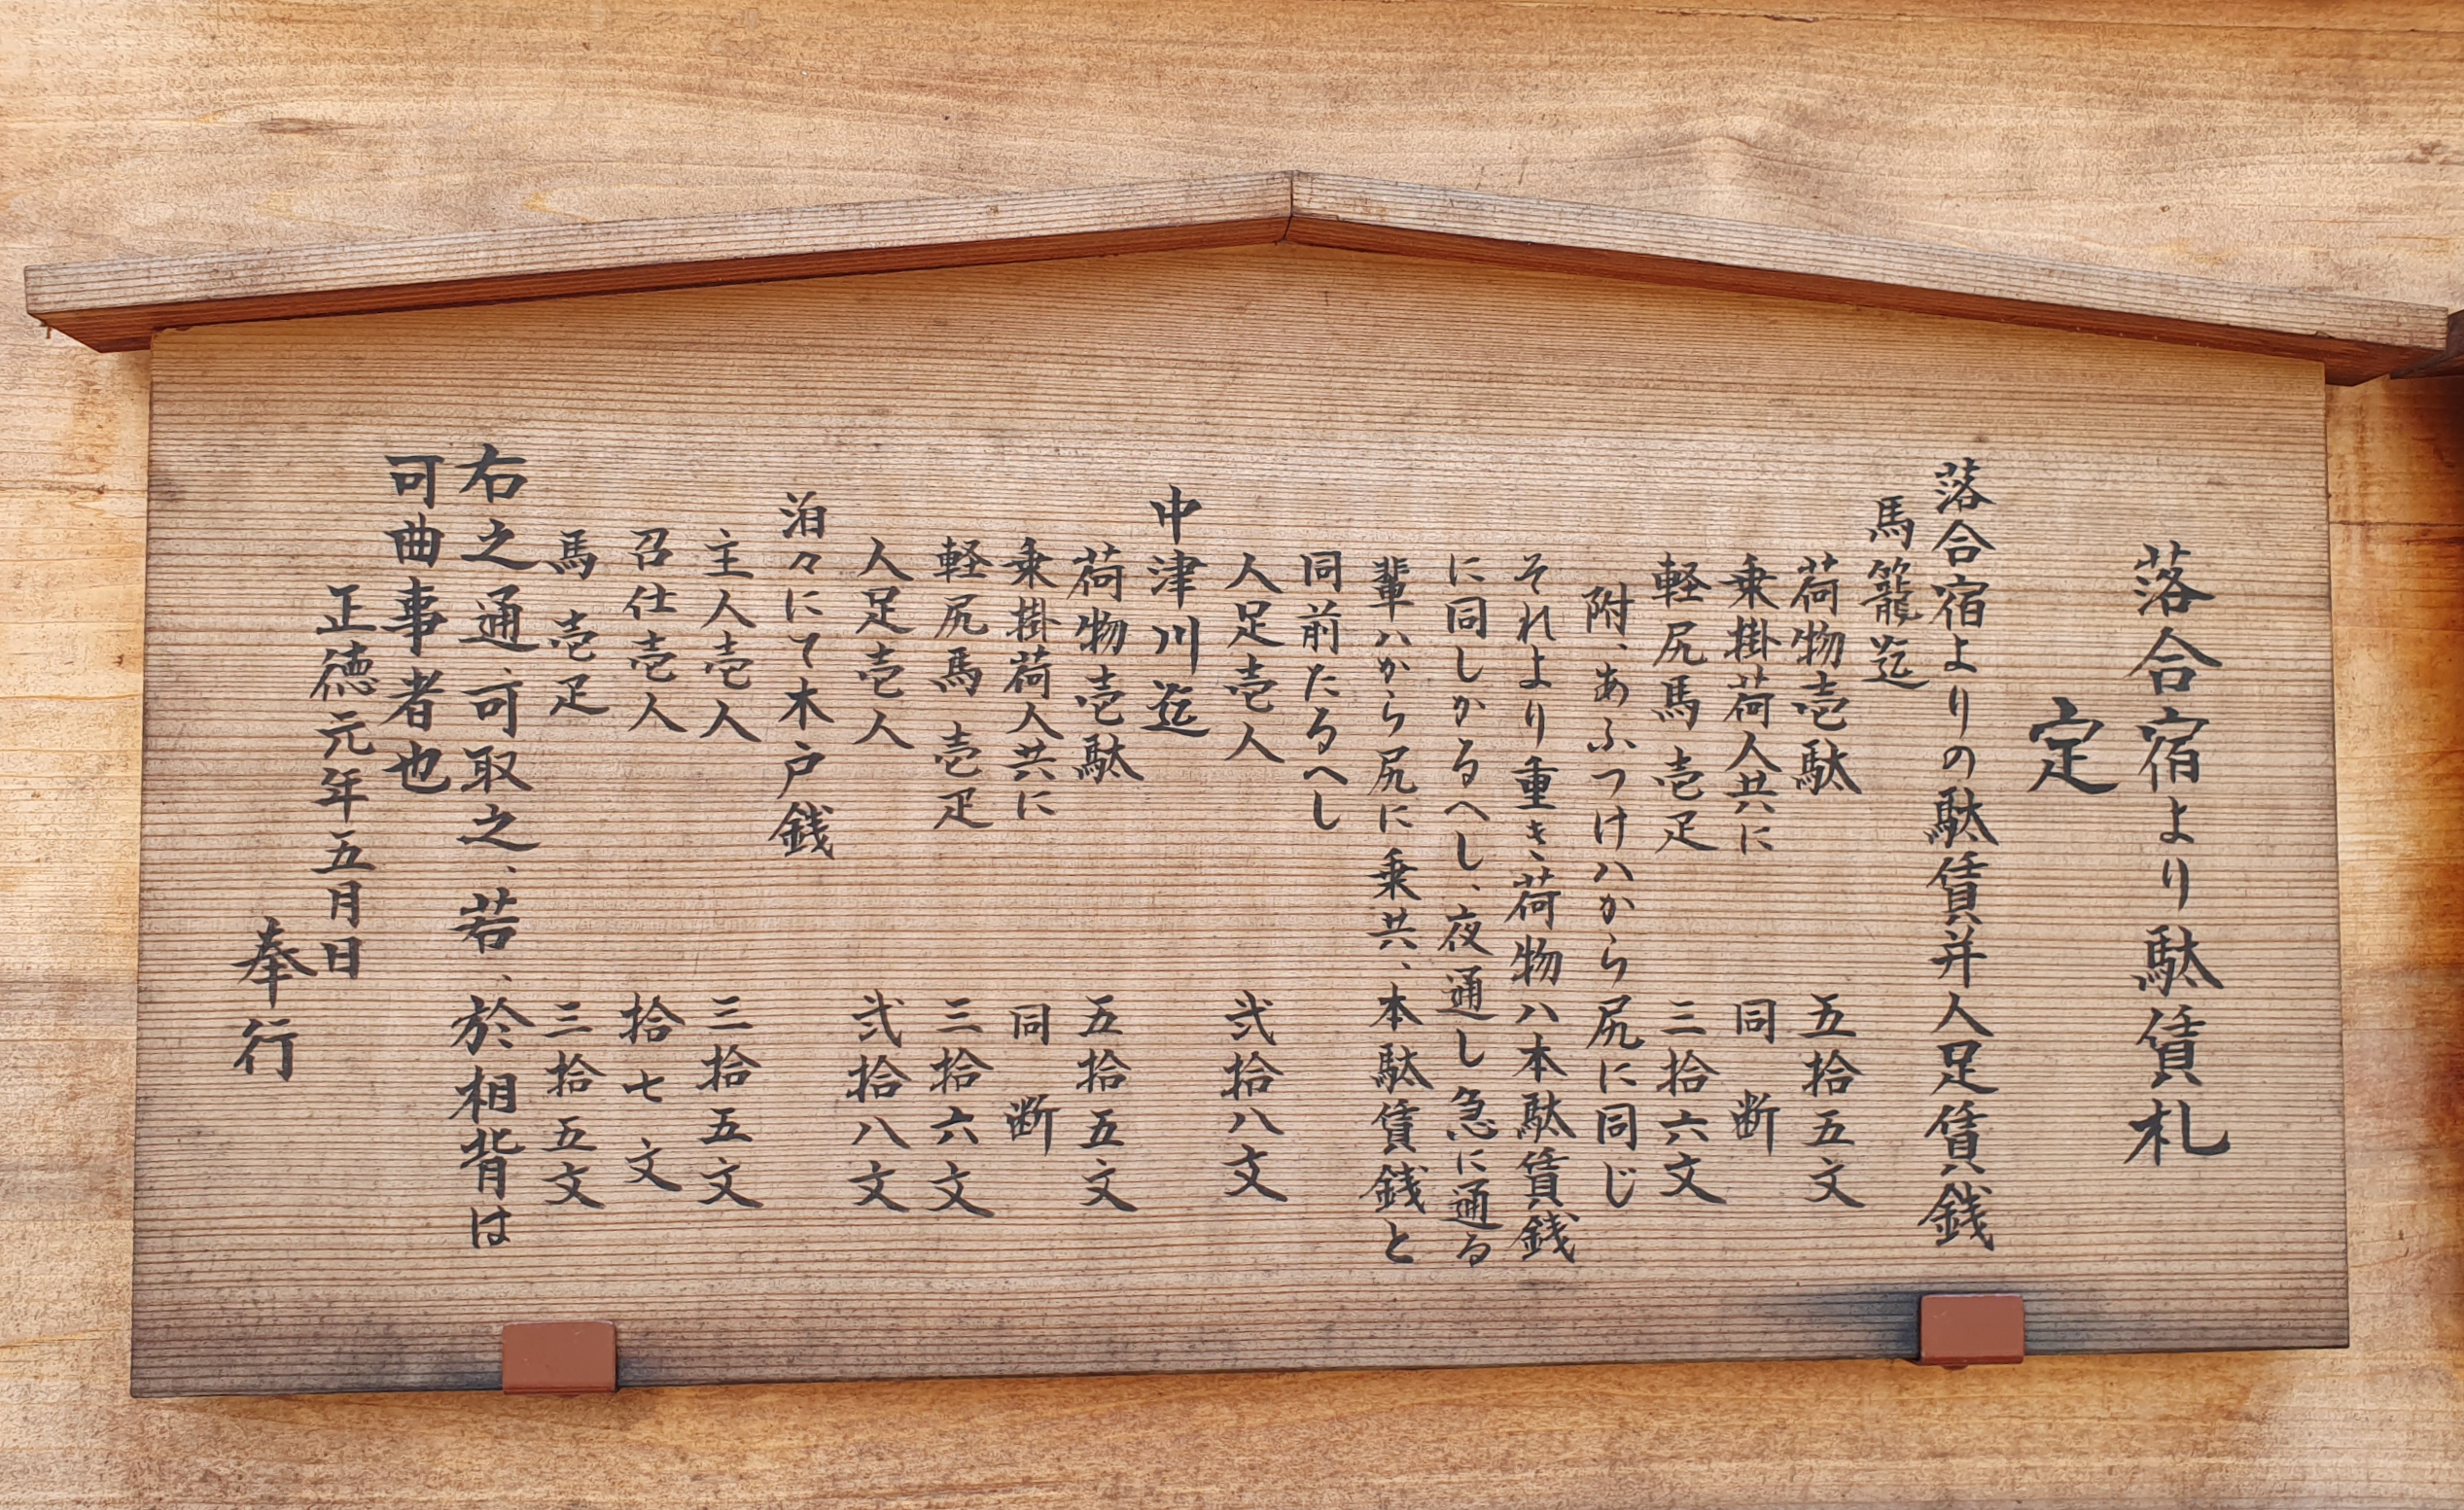 落合宿より駄賃札
定
落合宿よりの駄賃并人足賃銭
馬籠迄
荷物壱駄 五拾五文
乗掛荷人共に 同断
軽尻馬壱疋 三拾六文
附、あふつけハから尻に同じ
それより重き、荷物ハ本駄賃銭
に同しかるへし、夜通し急に通る
輩ハから尻に乗共、本駄賃銭と
同前たるへし
人足壱人 弐拾八文
中津川迄
荷物壱駄 五拾五文
乗掛荷人共に 同断
軽尻馬壱疋 三拾六文
人足壱人 弐拾八文
泊々にて木戸銭
主人壱人 三拾五文
召仕壱人 拾七文
馬壱疋 三拾五文
右之通、可取之、若、於相背は
可曲事者也
正徳元年五月日
奉行